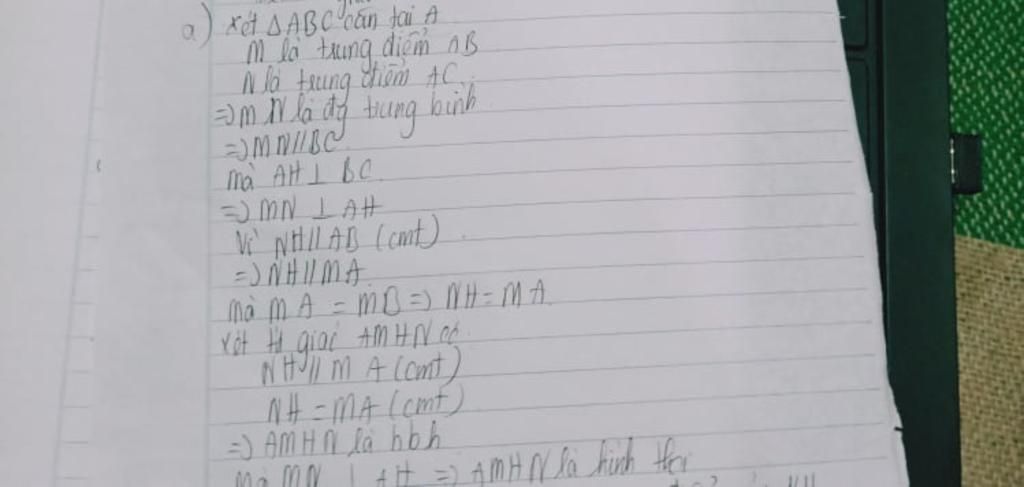 a) xét △ABC cân tại A
M là trung điểm AB
N là trung điểm AC
=> MN là đg trung bình
=> MN // BC
mà AH ⊥ BC
=> MN ⊥ AH
Vì NH // AB (cmt)
=> NH // MA
mà MA = MB => NH = MA
xét tứ giác AMHN có
NH // MA (cmt)
NH = MA (cmt)
=> AMHN là hbh
Mà MN ⊥ AH => AMHN là hình thoi